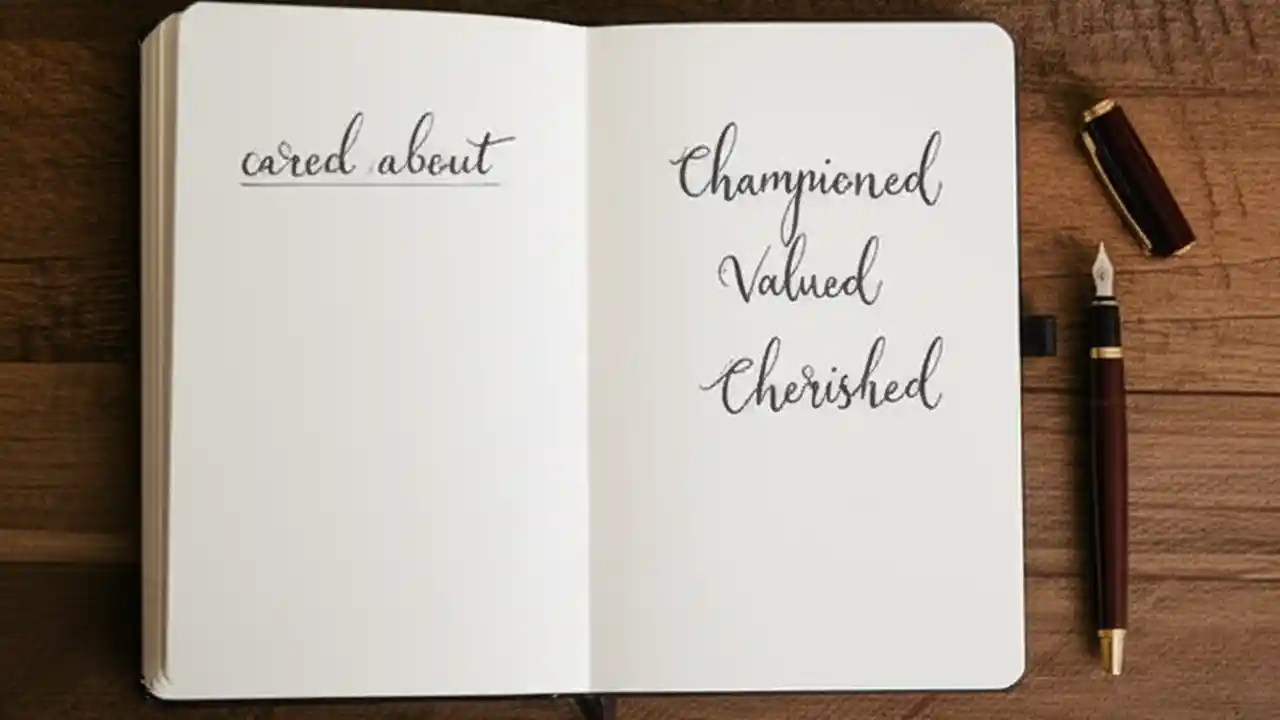 cared about
Championed
Valued
Cherished